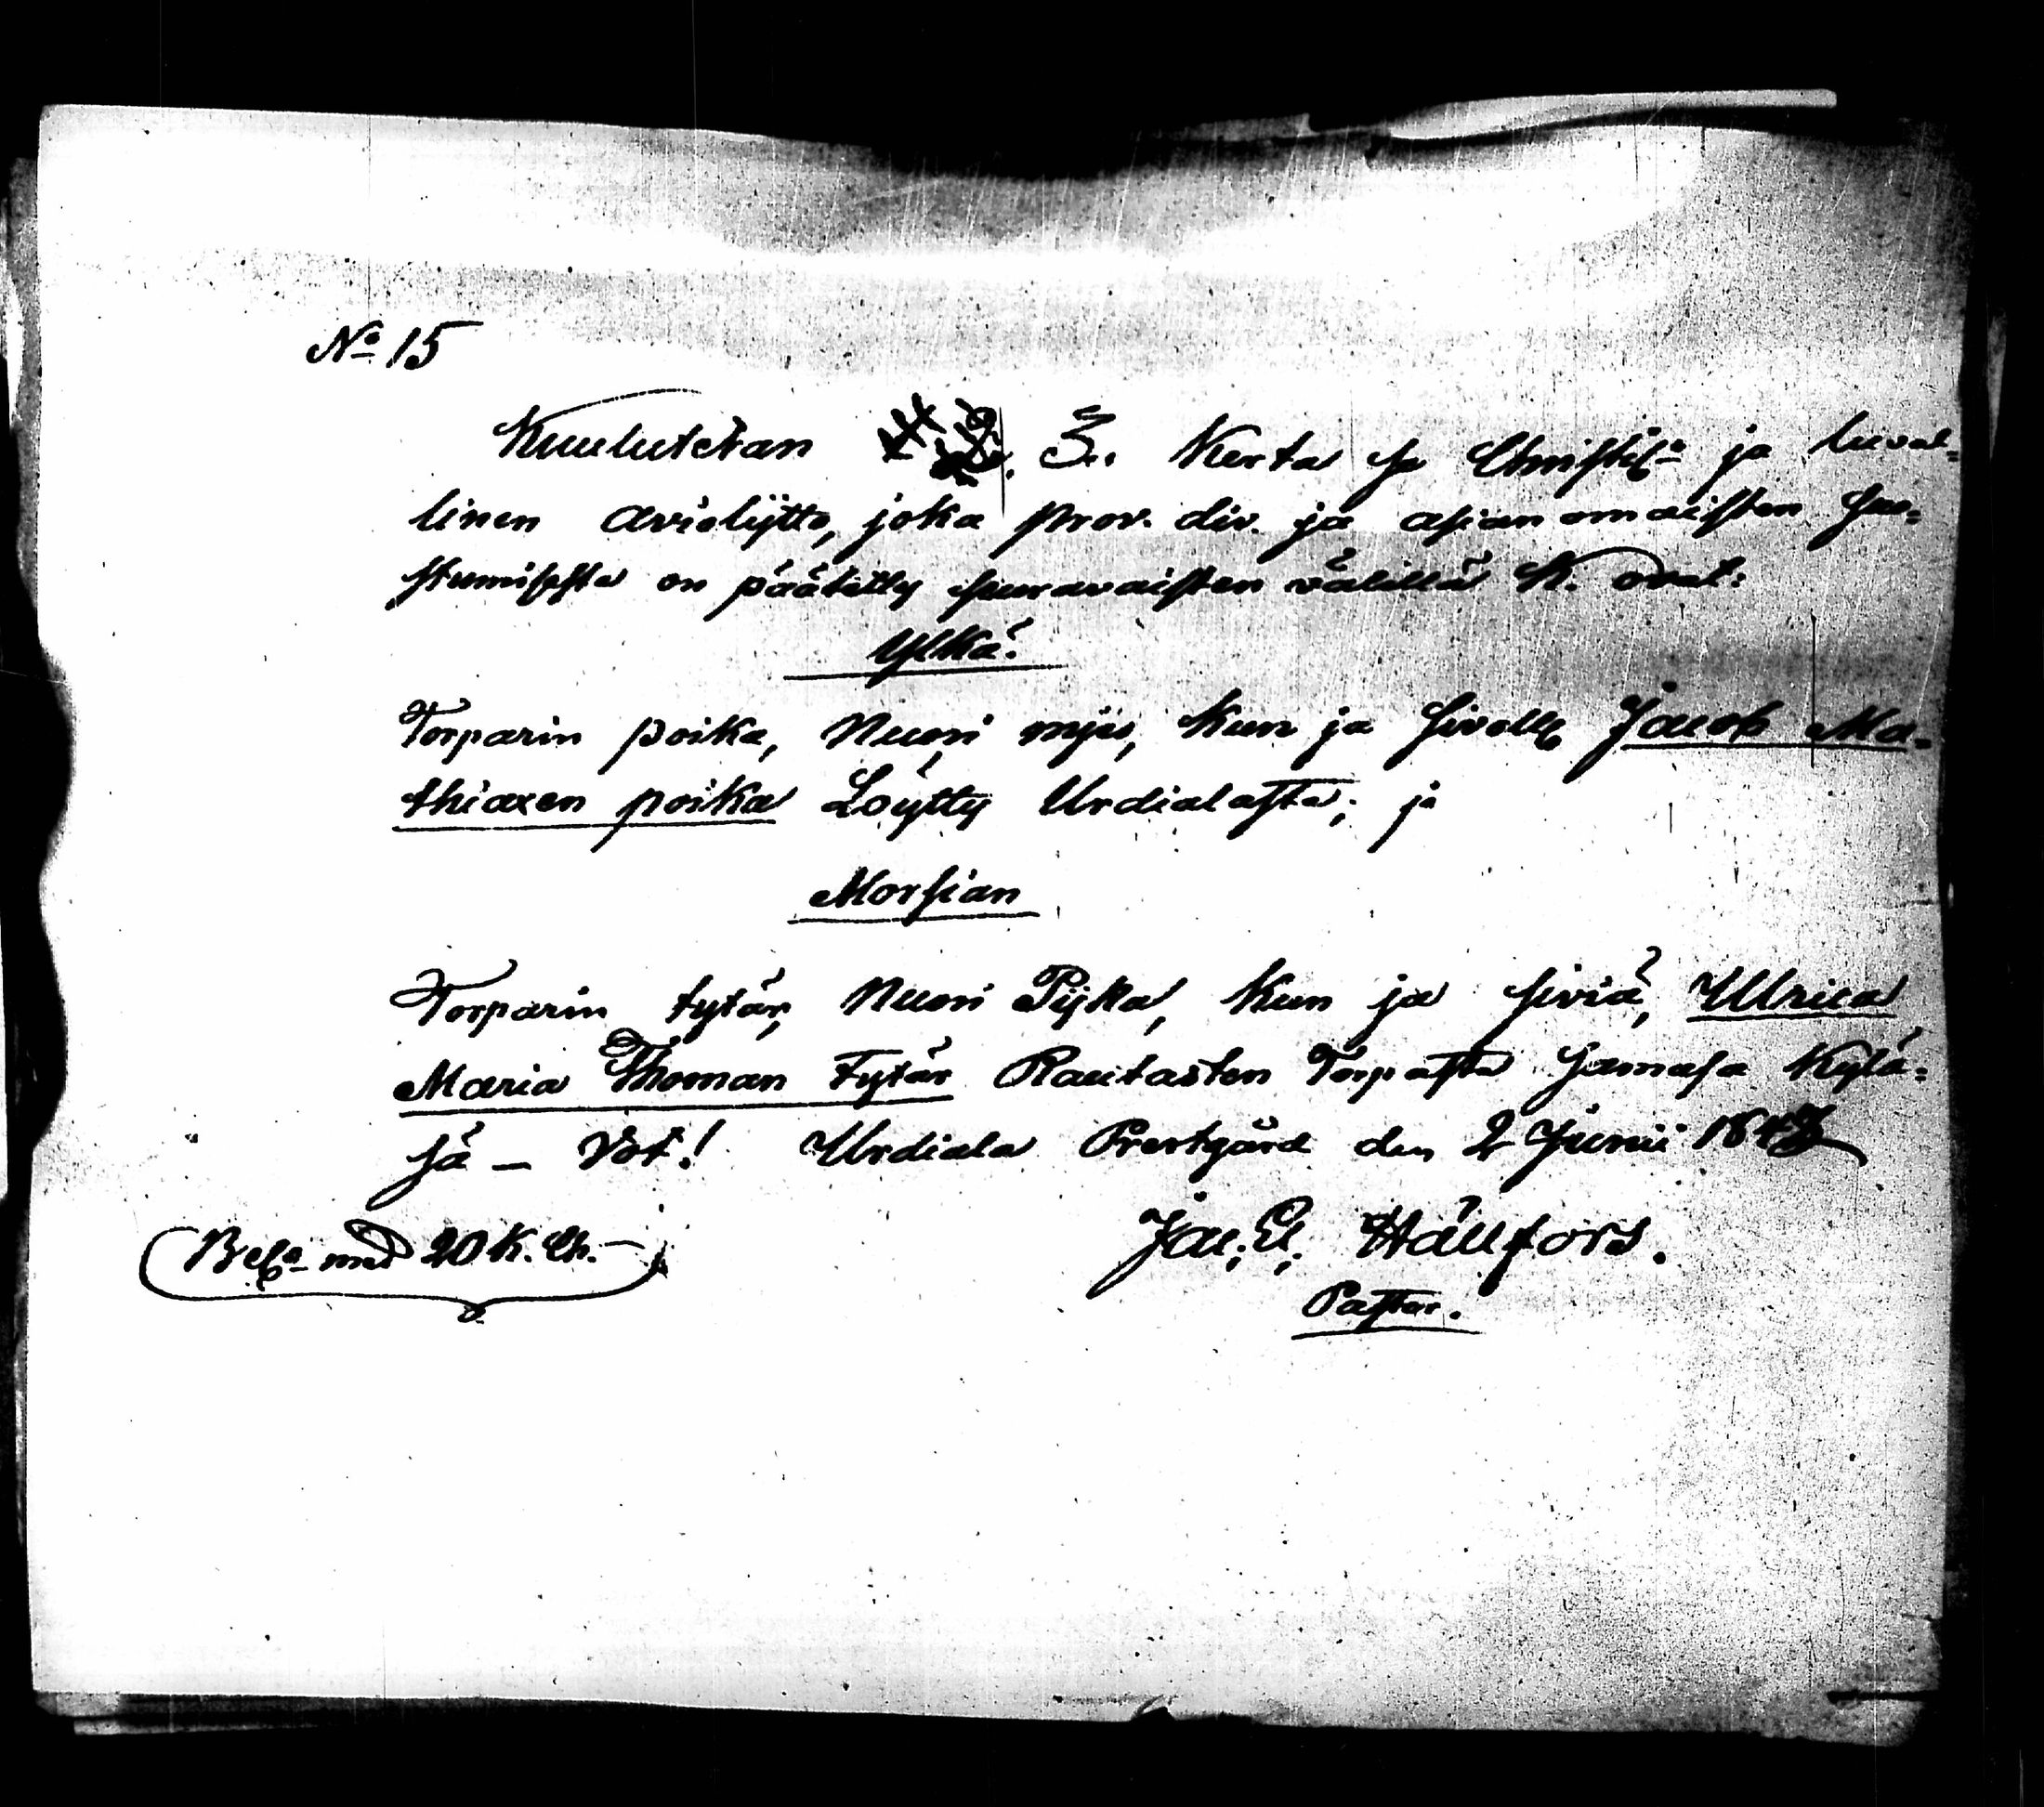 No 15
Kuulutetan 3. Kerta se Christel. ja luval=
linen aviolijtto, joka prov. div. ja asian omaisten suo=
stumisesta on päätetty seuravaisten välillä K. ovat:
Ylkä.
Torparin poika, Nuori mjes, Kun ja siveä Jacob Ma=
thiaxen poika Löytty Urdialasta; ja
Morsian
Torparin tytär, Nuori Pijka, Kun ja siviä, Ulrica
Maria Thoman tytär Rautasten Torpasta Kylä=
sä – Vot! Urdiala Prestgård den 2 Junii 184
Jac. El. Hällfors.
Bel. med 20 K. Ch.
Pastor.